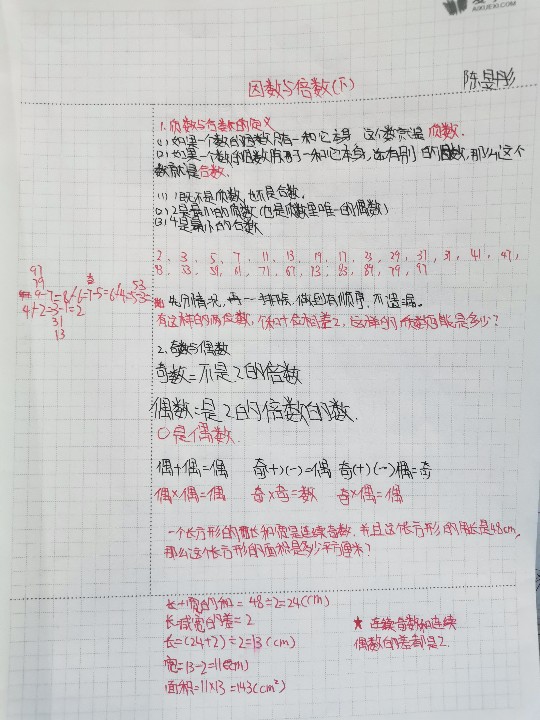 AIXUEXI.COM
因数与倍数(下)
陈旻彤
1.质数与合数的定义
(1)如果一个数的因数只有一和它本身 这个数就是 质数.
(2)如果一个数的因数除了一和它本身,还有别的因数,那么这个
数就是合数.
(1)1既不是质数,也不是合数.
(2)2是最小的质数(也是质数里唯一的偶数)
(3)4是最小的合数
2, 3, 5, 7, 11, 13, 17, 19, 23, 29, 31, 37, 41, 47,
43, 53, 59, 61, 71, 67, 73, 83, 89, 79, 97
97
79
9-7=8-6=7-5=6-4=5-3=
奇
53
4-2=3-1=2
31
13
先分情况,再一一排除,做到有顺序,不遗漏。
有这样的两位数,个和十位相差2,这样的质数可能是多少?
2.奇数与偶数
奇数=不是2的倍数
偶数=是2的倍数的数.
0是偶数.
偶+偶=偶 奇(+)(-)=偶 奇(+)(-)偶=奇
偶×偶=偶 奇×奇=数 奇×偶=偶
一个长方形的长和宽是连续奇数,并且这个长方形的周长是48cm,
那么这个长方形的面积是多少平方厘米?
长+宽的和=48÷2=24(cm)
长-减宽的差=2
长=(24+2)÷2=13(cm)
宽=13-2=11(cm)
面积=11×13=143(cm²)
★ 连续奇数和连续
偶数的差都是2.